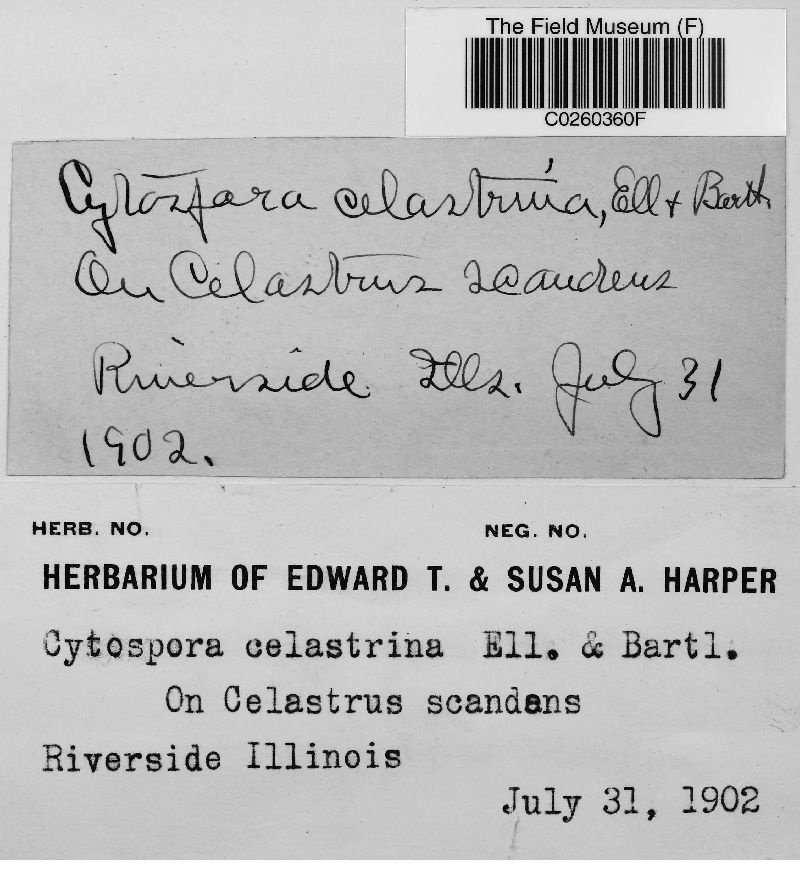 The Field Museum (F)
C0260360F
Cytospora celastrina, Ell & Barth.
On Celastrus scandens
Riverside Ills. July 31
1902.
HERB. NO. NEG. NO.
HERBARIUM OF EDWARD T. & SUSAN A. HARPER
Cytospora celastrina Ell. & Bartl.
On Celastrus scandans
Riverside Illinois
July 31, 1902